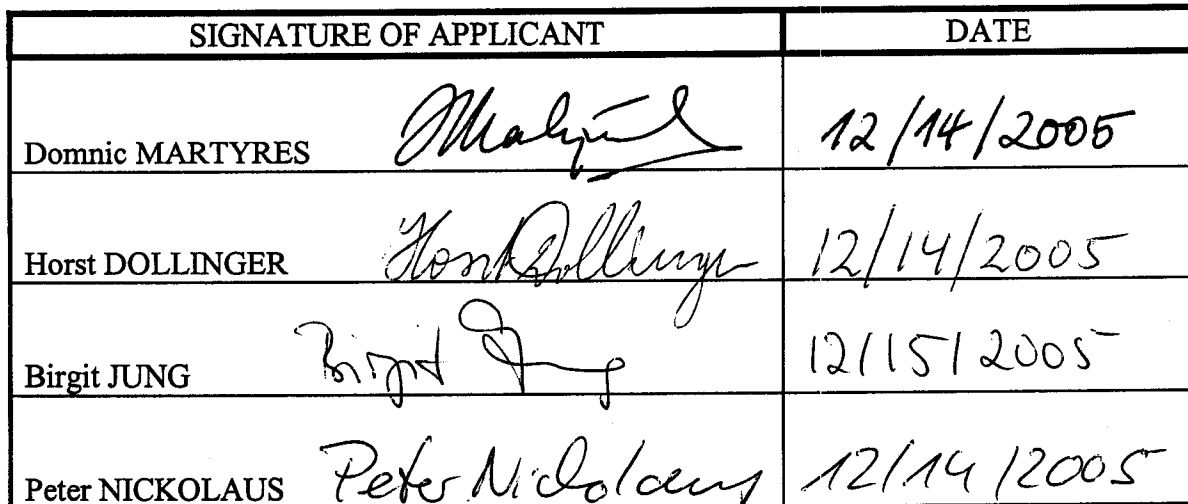 SIGNATURE OF APPLICANT DATE
Domnic MARTYRES 12/14/2005
Horst DOLLINGER Horst Dollinger 12/14/2005
Birgit JUNG Birgit Jung 12/15/2005
Peter NICKOLAUS Peter Nickolaus 12/14/2005